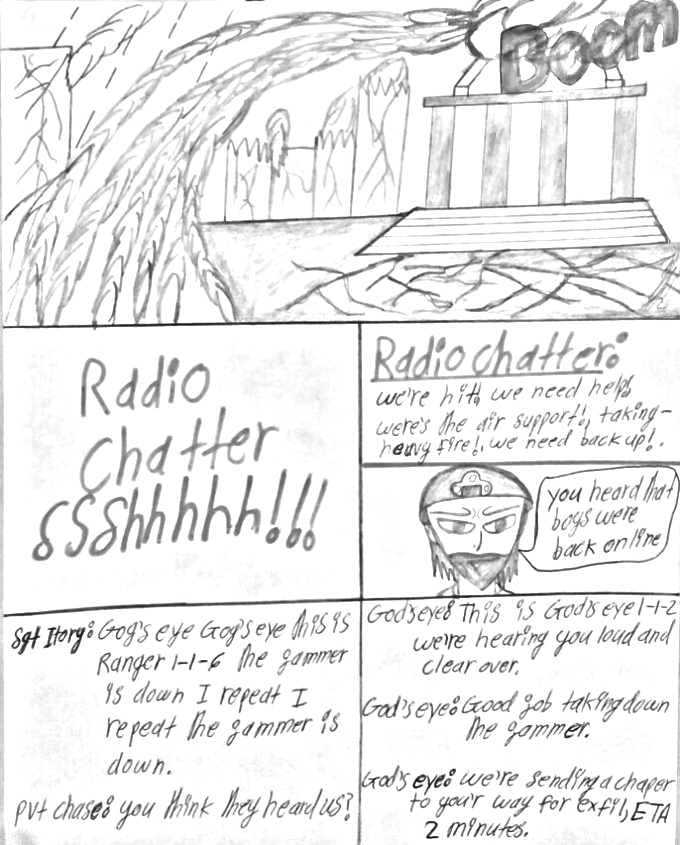 BOOM
Radio
Chatter
SSShhhhh!!!
Radio chatter:
we're hit, we need help,
were's the air support!, taking-
heavy fire!, we need back up!.
you heard that
boys were
back online
Sgt Itory: Gog's eye Gog's eye this is
Ranger 1-1-6 the jammer
is down I repeat I
repeat the jammer is
down.
pvt chase: you think they heard us?
God's eye: This is God's eye 1-1-2
we're hearing you loud and
clear over.
God's eye: Good job taking down
the jammer.
God's eye: we're sending a chaper
to your way for exfil, ETA
2 minutes.